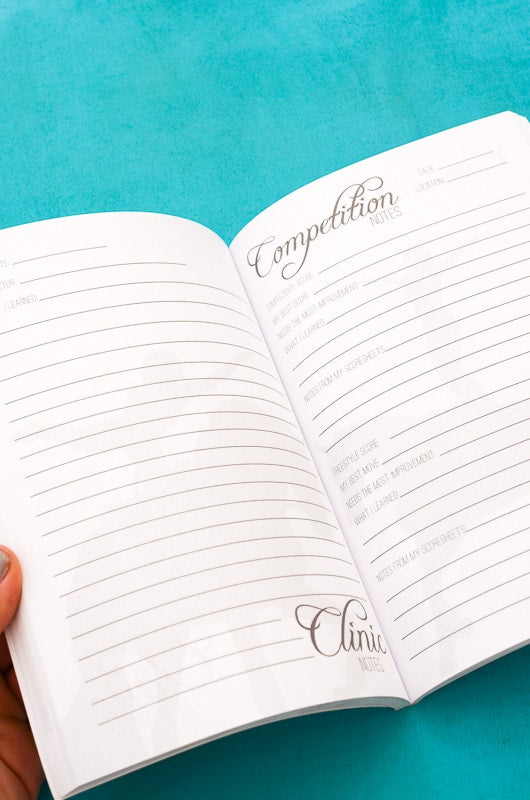 TE
CTOR
I LEARNED
Clinic
NOTES
DATE
LOCATION
Competition
NOTES
COMPULSORY SCORE
MY BEST SCORE
NEEDS THE MOST IMPROVEMENT
WHAT I LEARNED
NOTES FROM MY SCORESHEETS
FREESTYLE SCORE
MY BEST MOVE
NEEDS THE MOST IMPROVEMENT
WHAT I LEARNED
NOTES FROM MY SCORESHEETS